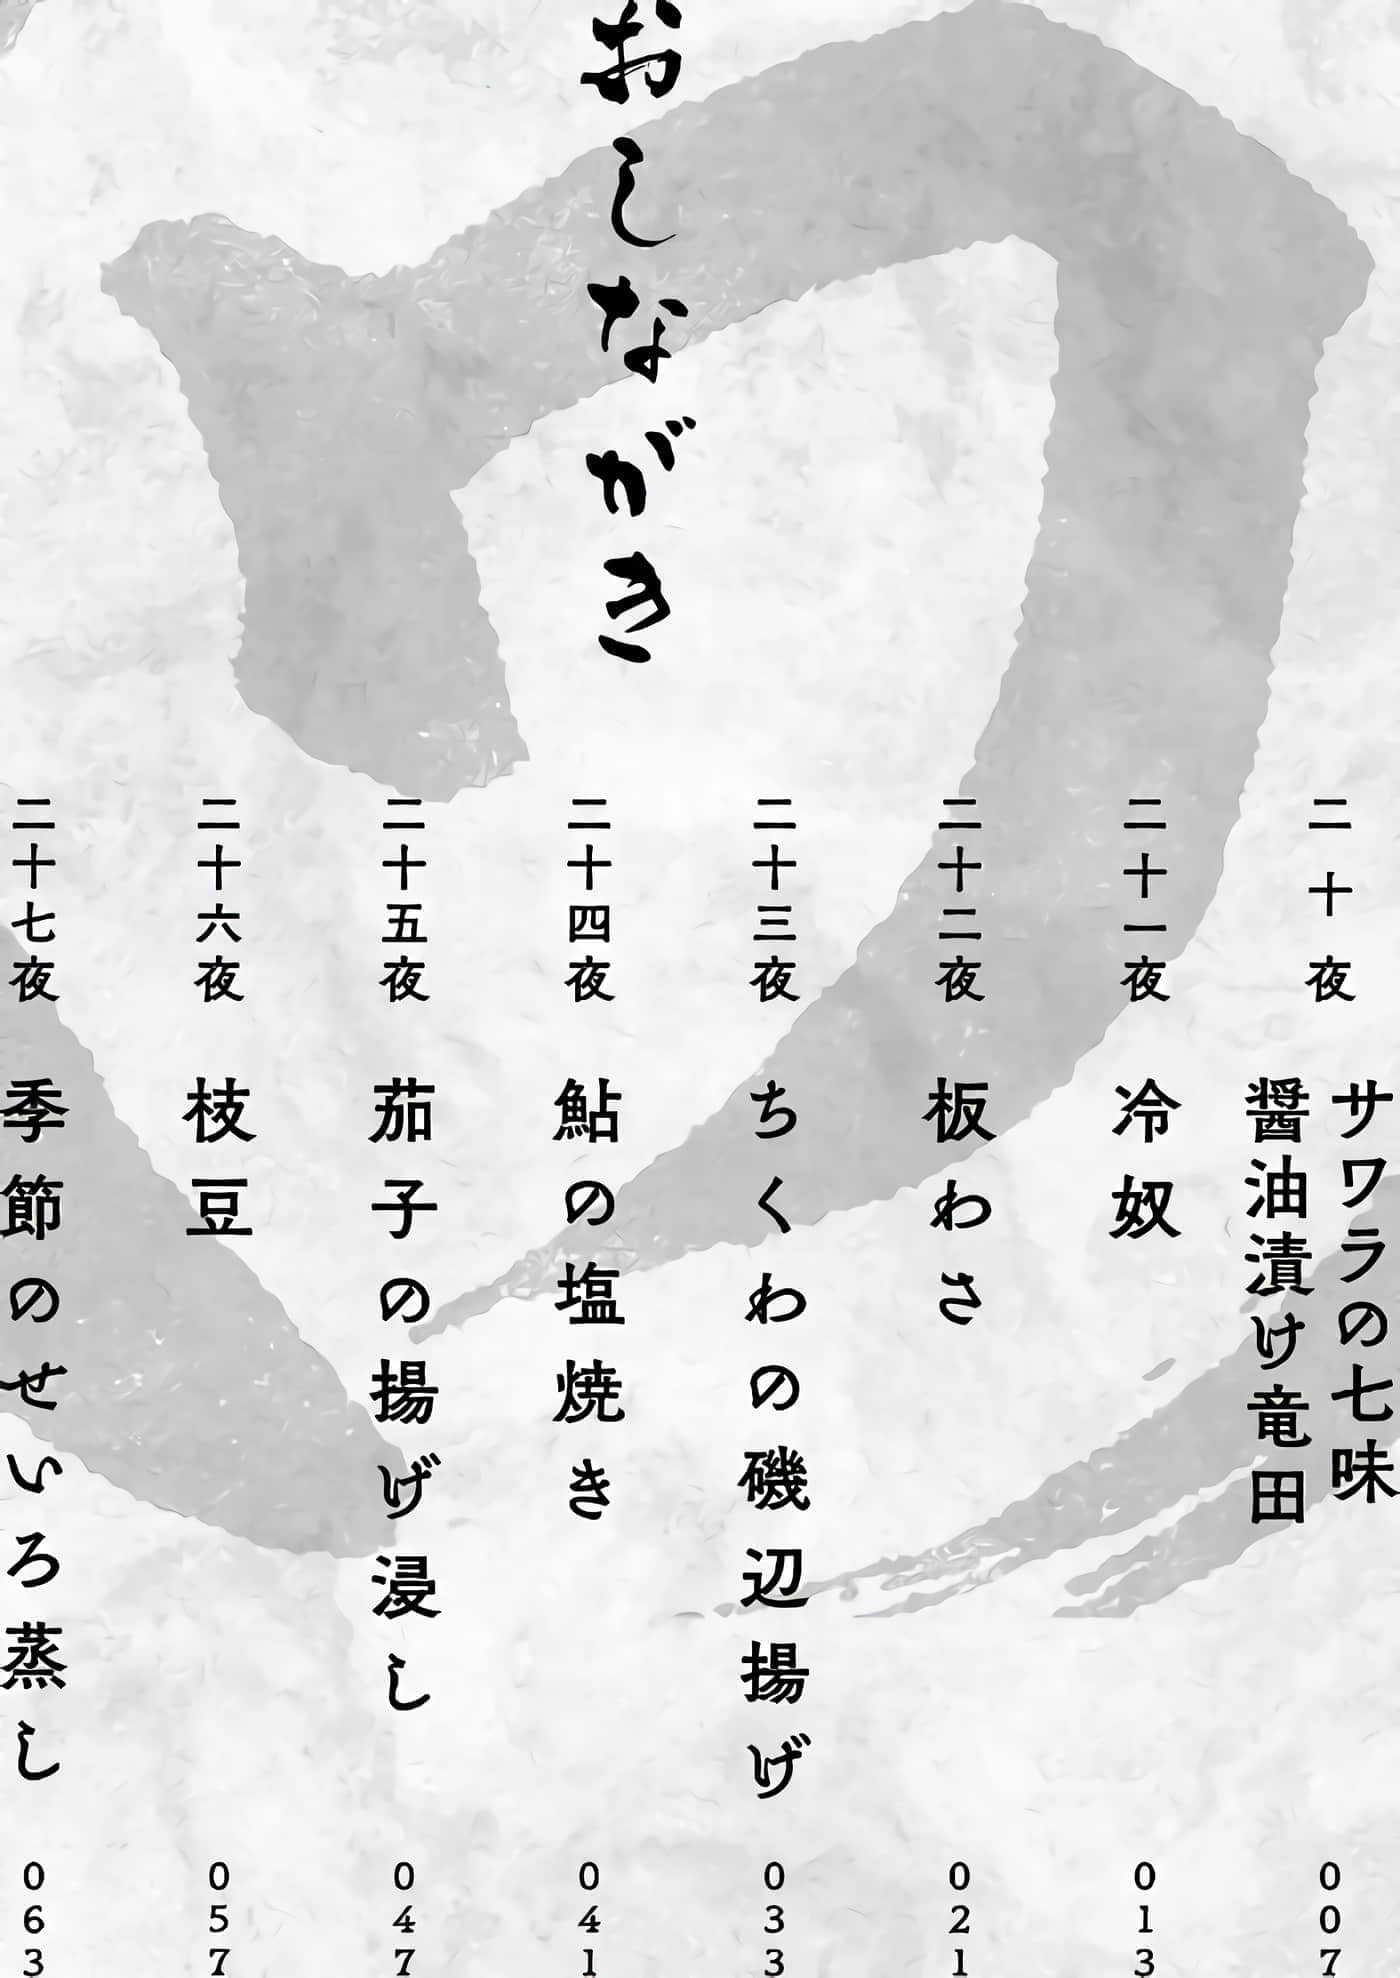 おしながき
二十夜
サワラの七味
醤油漬け竜田
007
二十一夜
冷奴
013
二十二夜
板わさ
021
二十三夜
ちくわの磯辺揚げ
033
二十四夜
鮎の塩焼き
041
二十五夜
茄子の揚げ浸し
047
二十六夜
枝豆
057
二十七夜
季節のせいろ蒸し
063